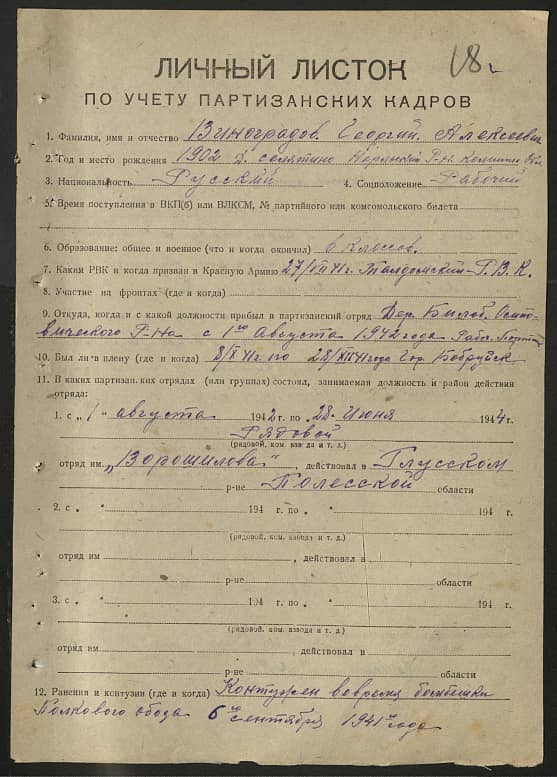 18.
ЛИЧНЫЙ ЛИСТОК
ПО УЧЕТУ ПАРТИЗАНСКИХ КАДРОВ
1. Фамилия, имя и отчество Виноградов Георгий Алексеевич
2. Год и место рождения 1902 д. Р-н
3. Национальность Русский 4. Соцположение Рабочий
5. Время поступления в ВКП(б) или ВЛКСМ, № партийного или комсомольского билета
6. Образование: общее и военное (что и когда окончил) 6 классов.
7. Каким РВК и когда призван в Красную Армию 27/VII 41г. Талдомский Р.В.К.
8. Участие на фронтах (где и когда)
9. Откуда, когда и с какой должности прибыл в партизанский отряд Дер. Осипо-
вического Р-на с 1го Августа 1942 года
10. Был ли в плену (где и когда) 8/X 41г по 28/XII 41 года гор. Бобруйск
11. В каких партизанских отрядах (или группах) состоял, занимаемая должность и район действия
отряда:
1. с „1" августа 1942 г. по „28" Июня 1944 г.
Рядовой
(рядовой, ком. взвода и т. д.)
отряд им. „Ворошилова", действовал в Глусском
р-не Полесской области
2. с „ " 194 г. по „ " 194 г.
(рядовой, ком. взвода и т. д.)
отряд им , действовал в
р-не области
3. с „ " 194 г. по „ " 194 г.
(рядовой, ком. взвода и т. д.)
отряд им , действовал в
р-не области
12. Ранения и контузии (где и когда) Контужен вовремя бомбешки
Полкового обоза 6го Сентября 1941 года